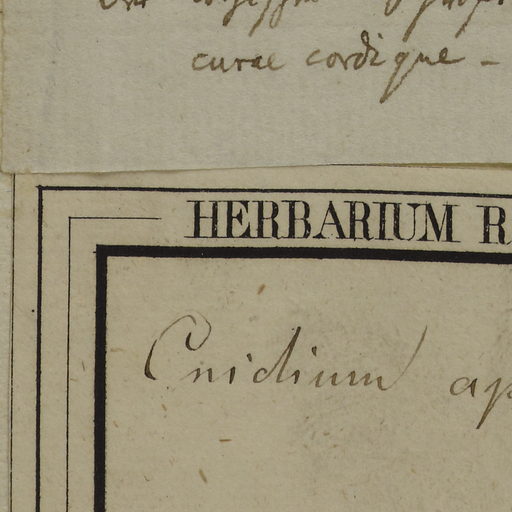 curae cordique -
HERBARIUM R
Cnidium ap